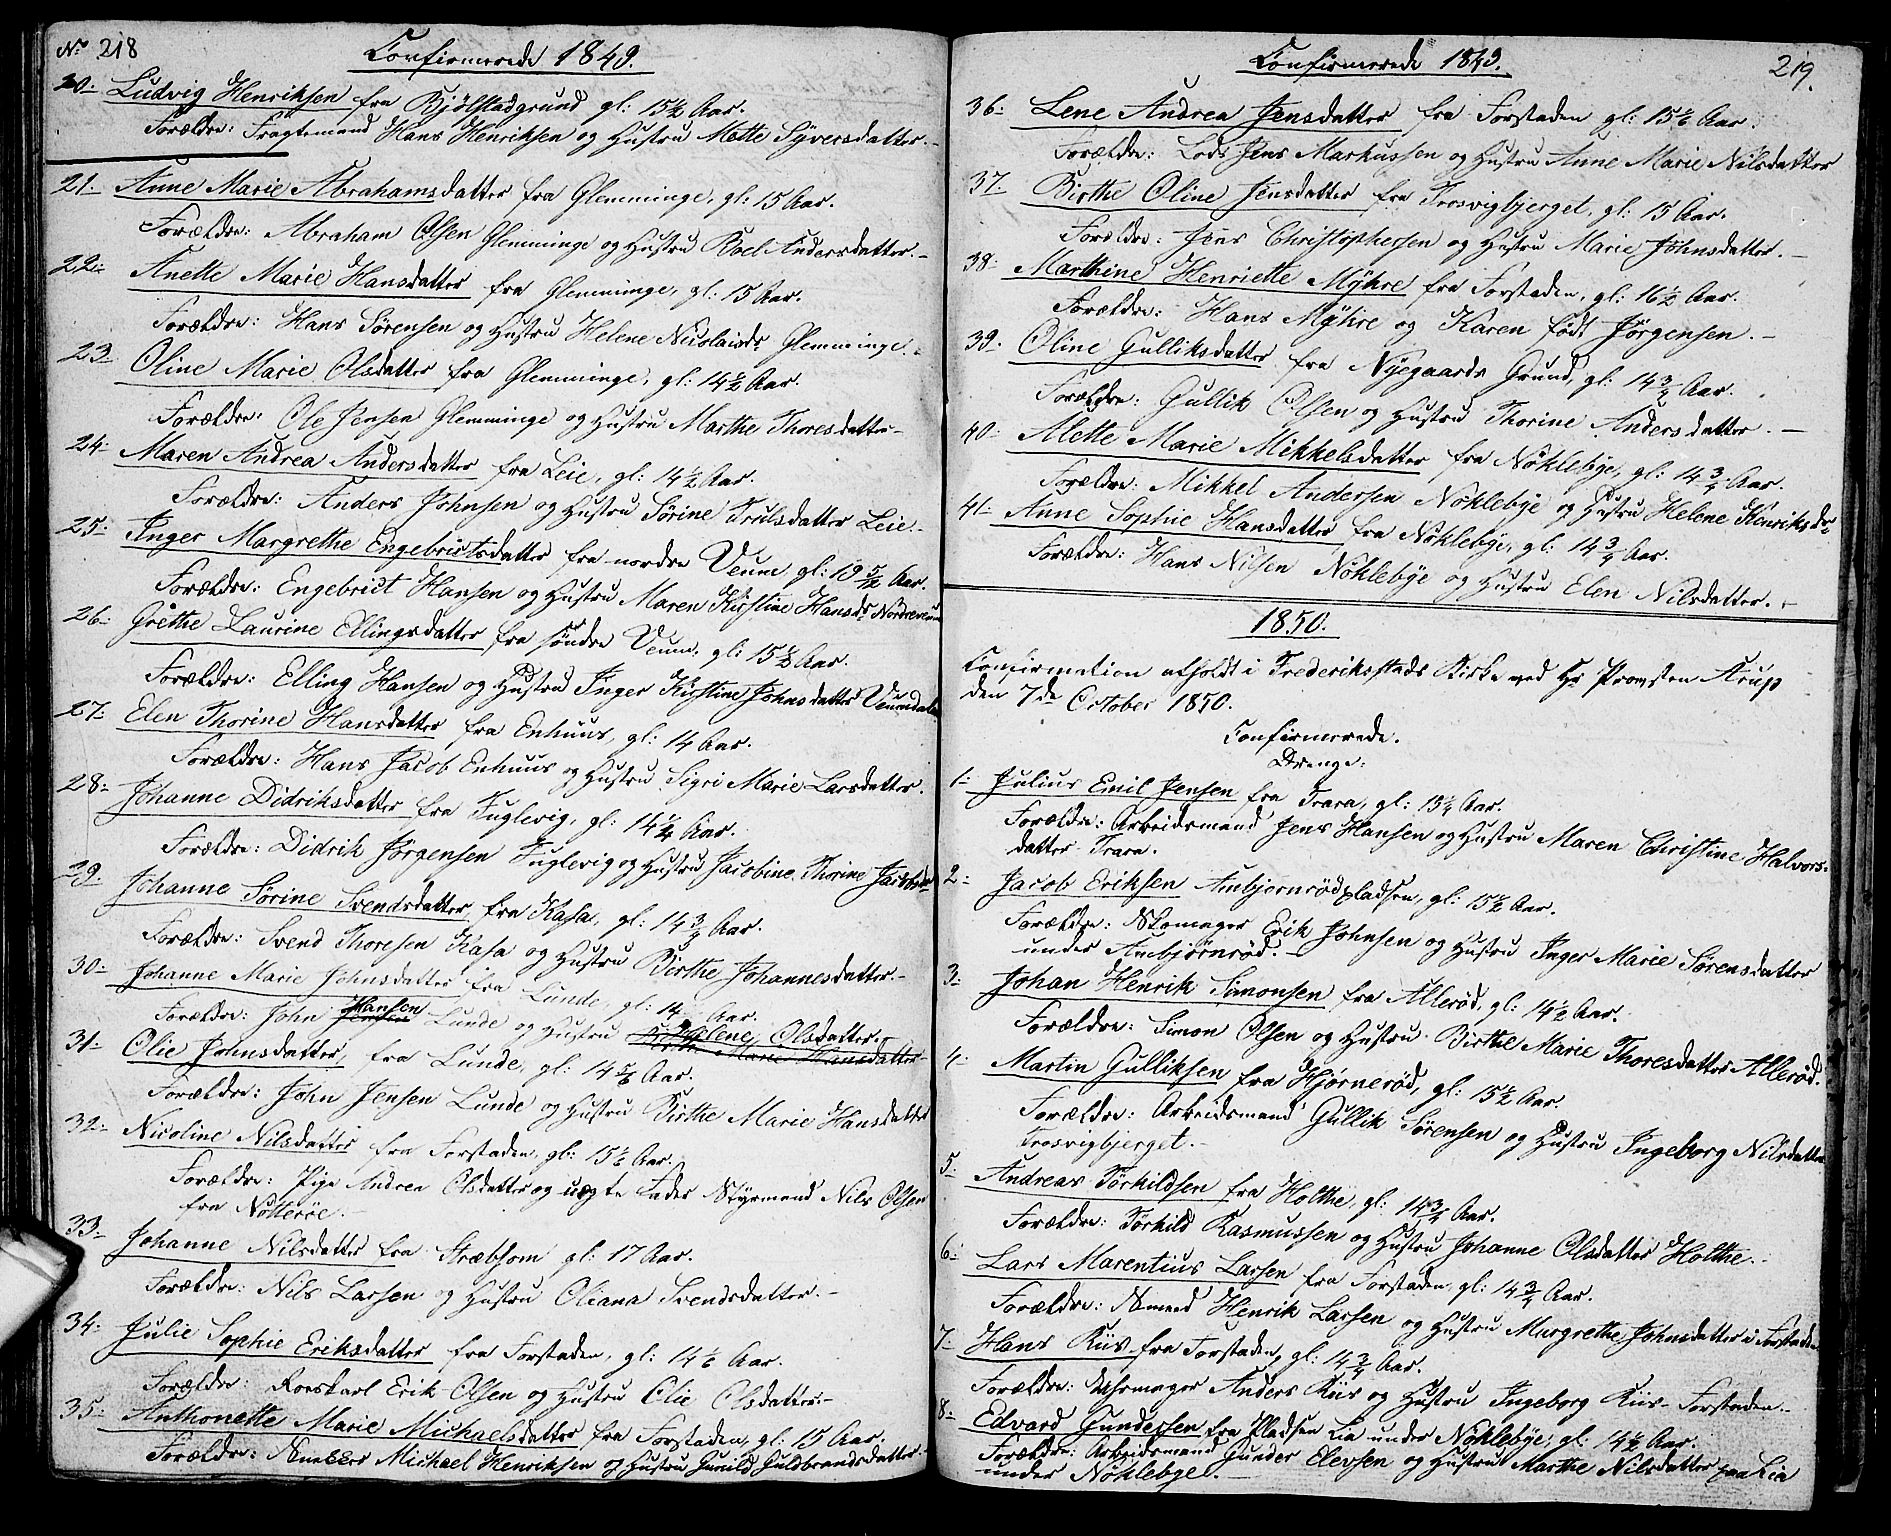 No 218
Confirmerede 1849.
20. Ludvig Henriksen fra Bjölstadgrund gl: 15½ Aar.
Forældre: Fragtemand Hans Henriksen og Hustru Mette Syversdatter.
21. Anne Marie Abrahamsdatter fra Glemminge, gl: 15 Aar.
Forældre: Abraham Olsen Glemminge og Hustru Boel Andersdatter.
22. Anette Marie Hansdatter fra Glemminge, gl: 15 Aar.
Forældre: Hans Sørensen og Hustru Helene Nicolaisdr Glemminge.
23. Oline Marie Olsdatter fra Glemminge, gl: 14½ Aar.
Forældre: Ole Jensen Glemminge og Hustru Marthe Thoresdatter
24. Maren Andrea Andersdatter fra Leie, gl: 14½ Aar.
Forældre: Anders Johnsen og Hustru Sörine Trulsdatter Leie.
25. Inger Margrethe Engebrictsdatter fra nordre Veum gl: Aar.
Forældre: Engebrict Hansen og Hustru Maren Kirstine Hansdr Nordreveum
26. Grethe Laurine Ellingsdatter fra söndre Veum, gl: 15½ Aar.
Forældre: Elling Hansen og Hustru Inger Kirstine Johnsdatter Veumdalen
27. Elen Thorine Hansdatter fra Enhuus, gl: 14 Aar.
Forældre: Hans Jacob Enhuus og Hustru Sigri Marie Larsdatter.
28. Johanne Didriksdatter fra Fuglevig, gl: 14¼ Aar.
Forældre: Didrik Jørgensen Fuglevig og Hustru Jacobine Thorine Jacobsdr
29. Johanne Sørine Svendsdatter fra Kasa, gl: 14¾ Aar.
Forældre: Svend Thoresen Kasa og Hustru Birthe Johannesdatter.
30. Johanne Marie Johnsdatter fra Lunde, gl: 14 Aar.
Forældre: John Jensen Hansen Lunde og Hustru Helene Olsdatter.
Marie Hansdatter
31. Olie Johnsdatter, fra Lunde, gl: Aar.
Forældre: John Jensen Lunde og Hustru Birthe Marie Hansdatter
32. Nicoline Nilsdatter fra Forstaden, gl: Aar.
Forældre: Pige Andrea Olsdatter og uægte Fader Styrmand Nils Olsen
fra Nötterøe.
33. Johanne Nilsdatter fra Stræbsom gl: 17 Aar.
Forældre: Nils Larsen og Hustru Oliana Svendsdatter.
34. Julie Sophie Eriksdatter fra Forstaden, gl: Aar.
Forældre: Roeskarl Erik Olsen og Hustru Olie Olsdatter.
35. Anthonette Marie Michaelsdatter fra Forstaden, gl: 15 Aar.
Forældre: Michael Henriksen og Hustru Gunild Guldbrandsdatter.
Confirmerede 1849.
219.
36. Lene Andrea Jensdatter fra Forstaden gl: Aar.
Forældre: Lods Jens Markussen og Hustru Anne Marie Nilsdatter
37. Birthe Oline Jensdatter fra Trosvigbjerget, gl: 15 Aar.
Forældre: Jens Christophersen og Hustru Marie Johnsdatter.
38. Marthine Henriette Mÿhre fra Forstaden, gl: 16½ Aar.
Forældre: Hans Mÿhre og Karen född Jørgensen.
39. Oline Gulliksdatter fra Nyegaards Grund, gl: 14¾ Aar.
Forældre: Gullik Olsen og Hustru Thorine Andersdatter.
40. Alette Marie Mikkelsdatter fra Nöklebye, gl: 14¾ Aar.
Forældre: Mikkel Andersen Nöklebye og Hustru Helene Henriksdr
41. Anne Sophie Hansdatter fra Nöklebye, gl: 14¾ Aar.
Forældre: Hans Nilsen Nöklebye og Hustru Elen Nilsdatter.
1850.
Confirmation afholdt i Frederiksstads Kirke ved Hr Provsten Arup
den 7de October 1850.
Confirmerede.
Drenge:
1. Julius Emil Jensen fra Trara, gl: 15¼ Aar.
Forældre: Arbeidsmand Jens Hansen og Hustru Maren Christine Halvors-
datter Trara.
2. Jacob Eriksen Ambjørnrödpladsen, gl: 15½ Aar.
Forældre: Skomager Erik Johnsen og Hustru Inger Marie Sørensdatter
under Ambjørnröd.
3. Johan Henrik Simonsen fra Alleröd, gl: 14½ Aar.
Forældre: Simon Olsen og Hustru Birthe Marie Thoresdatter Alleröd.
4. Martin Gulliksen fra Hjörneröd, gl: 15½ Aar.
Forældre: Arbeidsmand Gullik Sørensen og Hustru Ingeborg Nilsdatter
Trosvigbjerget.
5. Andreas Törkildsen fra Holthe, gl: 14¾ Aar.
Forældre: Törkild Rasmussen og Hustru Johanne Olsdatter Holthe.
6. Lars Marentius Larsen fra Forstaden, gl: 14¾ Aar.
Forældre: Henrik Larsen og Hustru Margrethe Johnsdatter i Forstaden
7. Hans Kiis fra Forstaden, gl: 14¾ Aar.
Forældre: Uhrmager Anders Kiis og Hustru Ingeborg Kiis Forstaden.
8. Edvard Gundersen fra Pladsen Lia under Nöklebye, gl: 14½ Aar.
Forældre: Arbeidsmand Gunder Elevsen og Hustru Marthe Nilsdatter paa Lia
under Nöklebye.